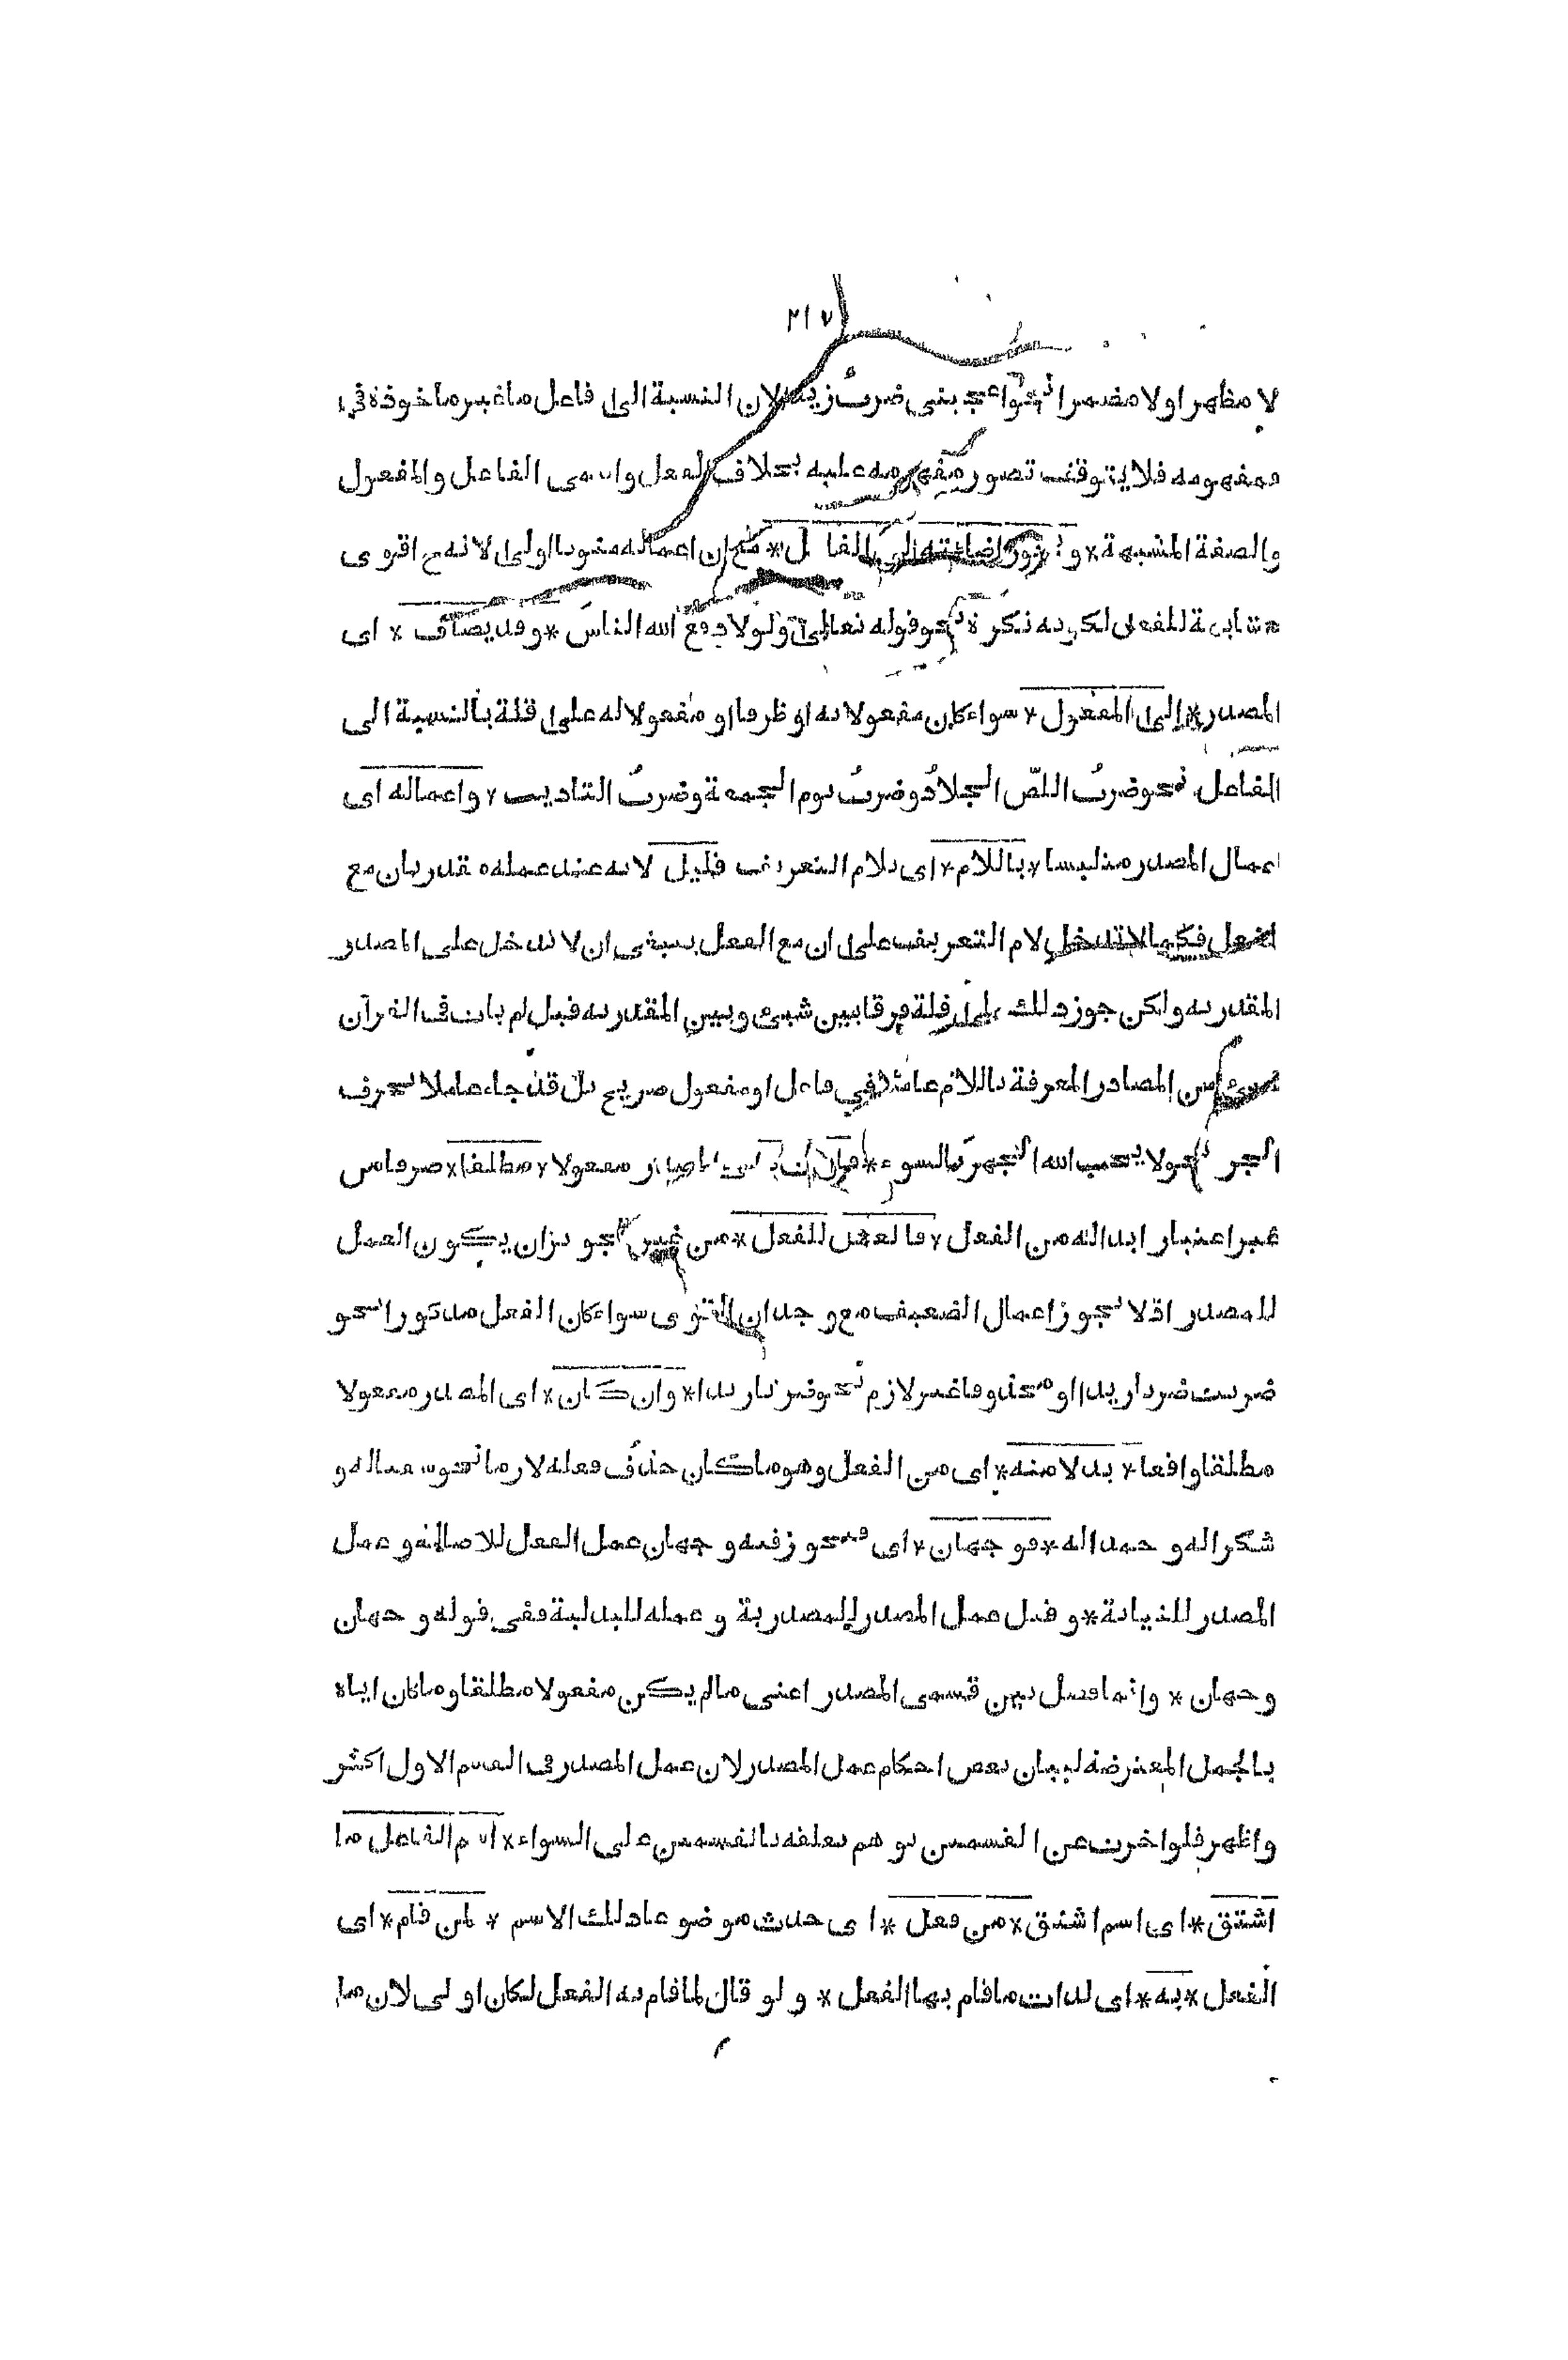 ٢١٧
لا مظهرا ولا مضمرا نحو اعجبنى ضربٌ زيدا لان النسبة الى فاعل ما غير ماخوذة فى
مفهومه فلا يتوقف تصور مفهومه عليه بخلاف الفعل واسمى الفاعل والمفعول
والصفة المشبهة * و يجوز اضافته الى الفاعل * مع ان اعماله منونا اولى لانه ح اقوى
مشابهة للفعل لكونه نكرة نحو قوله تعالى ولولا دفع الله الناسَ * وقد يضاف * اى
المصدر * الى المفعول * سواء كان مفعولا به او ظرفا او مفعولا له على قلة بالنسبة الى
الفاعل نحو ضربُ اللصّ الجلادُ وضربُ يوم الجمعة وضربُ التاديب * واعماله اى
اعمال المصدر متلبسا * باللام * اى بلام التعريف قليل لانه عند عمله مقدر بان مع
الفعل فكما لا تدخل لام التعريف على ان مع الفعل ينبغى ان لا تدخل على المصدر
المقدر به ولكن جوز ذلك على قلة فرقا بين شىء وبين المقدر به قيل لم يات فى القرآن
شىء من المصادر المعرفة باللام عاملا فى فاعل او مفعول صريح بل قد جاء عاملا بحرف
الجر نحو لا يحب الله الجهرَ بالسوء * فان كان مفعولا * مطلقا * صرفا من
غير اعتبار ابداله من الفعل * فالعمل للفعل * من غير تجويز ان يكون العمل
للمصدر اذ لا يجوز اعمال الضعيف مع وجدان القوى سواء كان الفعل مذكورا نحو
ضربت ضربا زيدا او محذوفا غير لازم نحو ضربا زيدا * وان كان * اى المصدر مفعولا
مطلقا واقعا * بدلا منه * اى من الفعل وهو ما كان حذف فعله لازما نحو سقيا له و
شكرا له و حمدا له * فوجهان * اى فيجوز فيه وجهان عمل الفعل للاصالة و عمل
المصدر للنيابة * و قيل عمل المصدر للمصدرية و عمله للبدلية ففى قوله وجهان
وجهان * وانما فصل بين قسمى المصدر اعنى ما لم يكن مفعولا مطلقا وما كان اياه
بالجمل المعترضة لبيان بعض احكام عمل المصدر لان عمل المصدر فى القسم الاول اكثر
واظهر فلو اخرت عن القسمين توهم تعلقه بالقسمين على السواء * اسم الفاعل ما
اشتق * اى اسم اشتق * من فعل * اى حدث موضوعا ذلك الاسم * لمن قام * اى
الفعل * به * اى لذات ما قام بها الفعل * ولو قال لما قام به الفعل لكان اولى لان ما